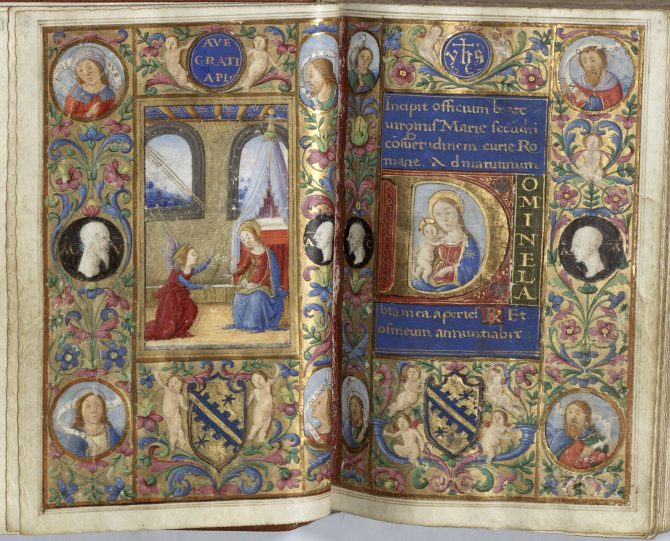 AVE
GRATI
A PL
yhs
Incipit officium beate
virginis Marie secūdū
cōsuetudinem curie Ro
mane. Ad matutinum
D
OMINE LA
bia mea aperies R Et
os meum annuntiabit